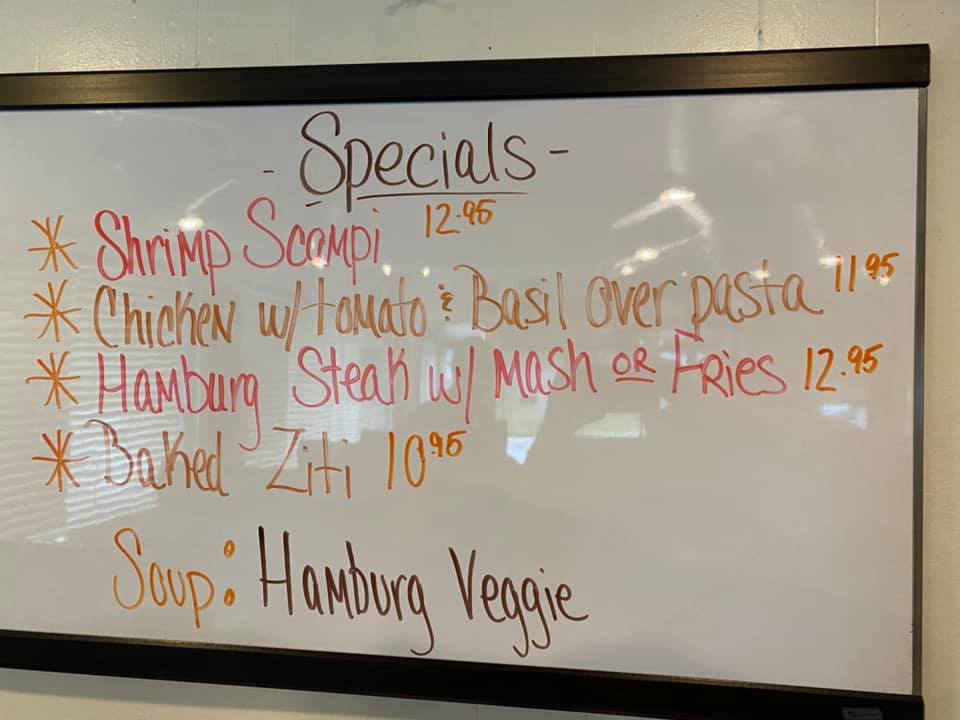 - Specials -
* Shrimp Scampi 12.95
* Chicken w/ tomato & Basil over pasta 11 95
* Hamburg Steak w/ Mash or Fries 12.95
* Baked Ziti 10 95
Soup: Hamburg Veggie